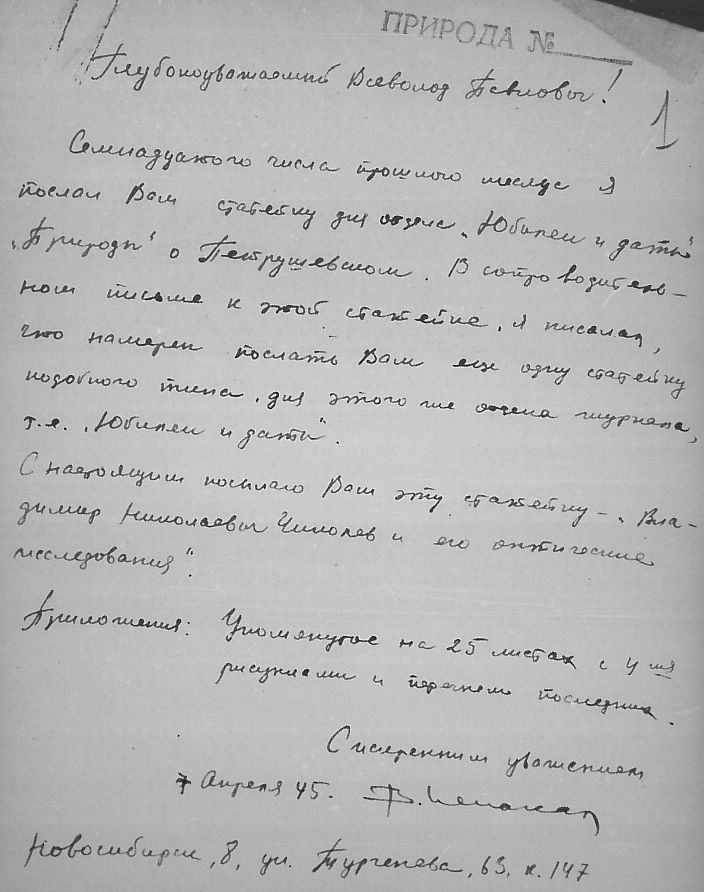 ПРИРОДА №
Глубокоуважаемый Всеволод Павлович!
1
Семнадцатого числа прошлого месяца я
послал Вам статейку для отдела „Юбилеи и даты"
„Природы" о Петрушевском. В сопроводитель-
ном письме к этой статейке, я писал,
что намерен послать Вам еще одну статейку
подобного типа, для этого же отдела журнала,
т.е. „Юбилеи и даты".
С настоящим посылаю Вам эту статейку – „Вла-
димир Николаевич Чиколев и его оптические
исследования".
Приложения: Упомянутое на 25 листах с 4 мя
рисунками и перечнем последних.
С искренним уважением
7 Апреля 45.
Новосибирск, 8, ул. Тургенева, 63, к. 147